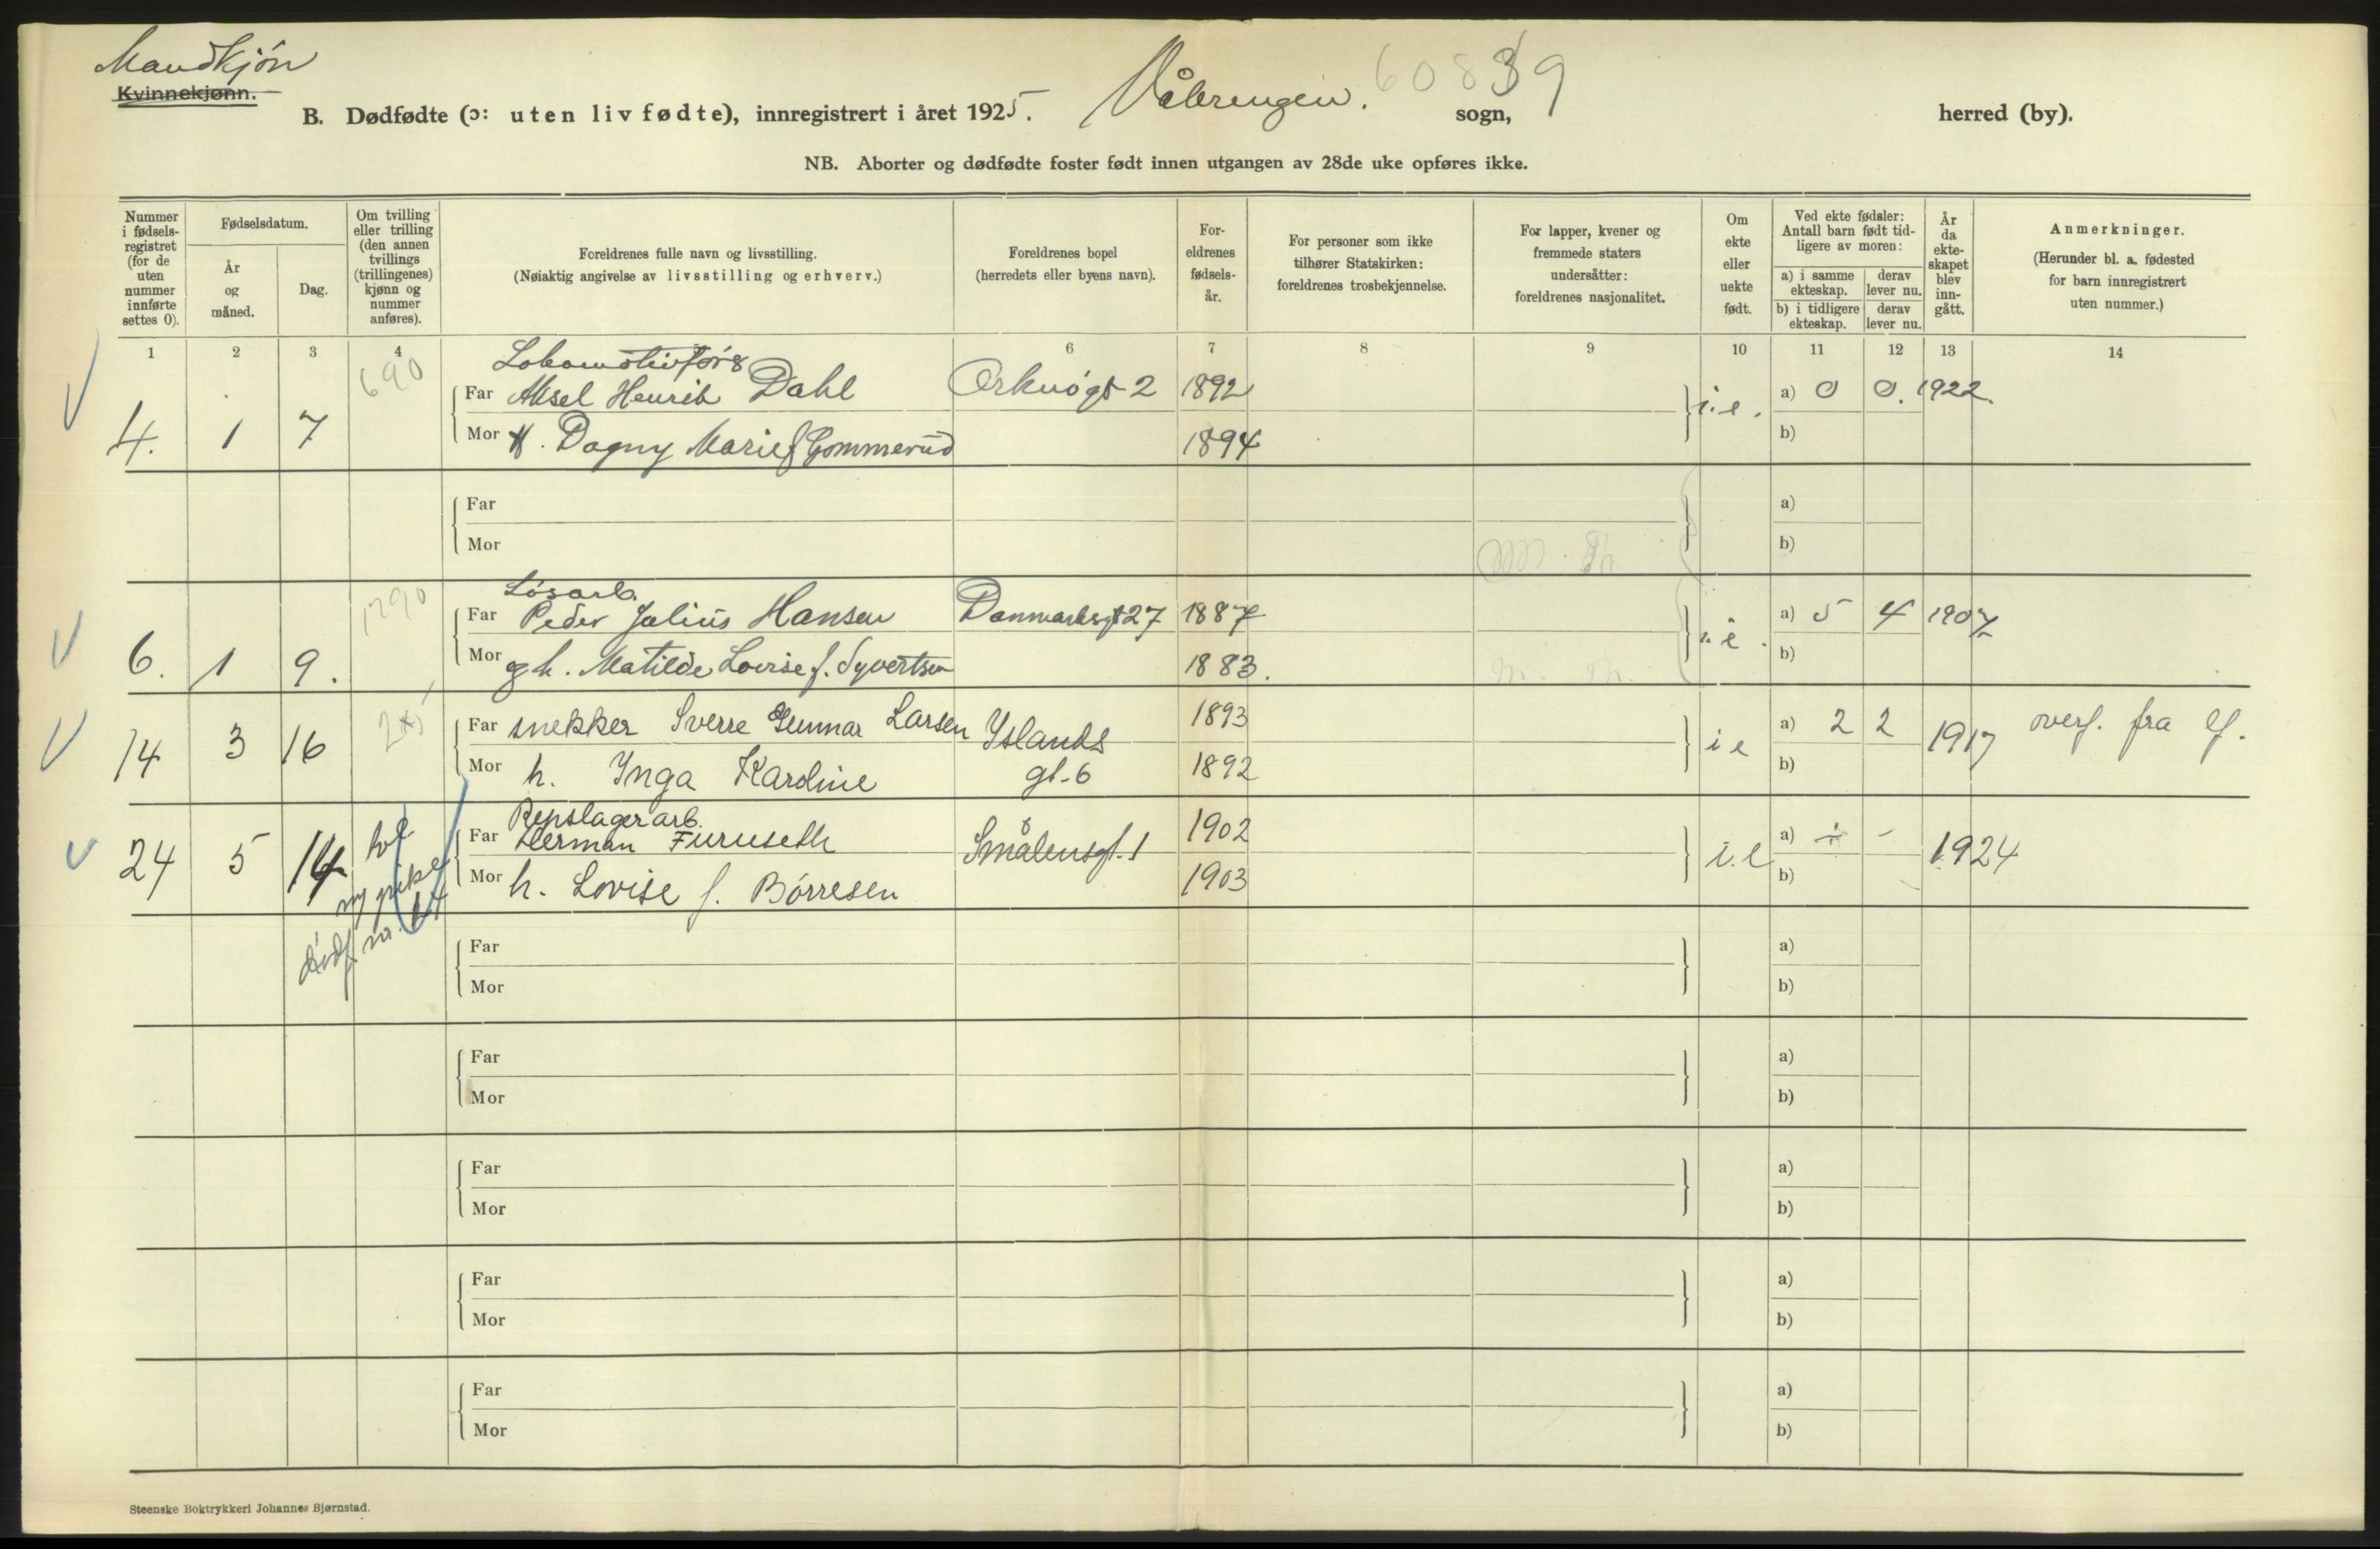 Mandkjøn
Kvinnekjønn.
B. Dødfødte (ɔ: uten liv fødte), innregistrert i året 1925. Vålerengen. sogn, 60839 herred (by).
NB. Aborter og dødfødte foster født innen utgangen av 28de uke opføres ikke.
Nummer i fødsels-registret (for de uten nummer innførte settes 0).
Fødselsdatum.
År og måned.
Dag.
Om tvilling eller trilling (den annen tvillings (trillingenes) kjønn og nummer anføres).
Foreldrenes fulle navn og livsstilling.
(Nøiaktig angivelse av livsstilling og erhverv.)
Foreldrenes bopel
(herredets eller byens navn).
For-eldrenes fødsels-år.
For personer som ikke tilhører Statskirken: foreldrenes trosbekjennelse.
For lapper, kvener og fremmede staters undersåtter: foreldrenes nasjonalitet.
Om ekte eller uekte født.
Ved ekte fødsler: Antall barn født tid-ligere av moren:
a) i samme ekteskap. derav lever nu.
b) i tidligere ekteskap. derav lever nu.
År da ekte-skapet blev inn-gått.
Anmerkninger.
(Herunder bl. a. fødested for barn innregistrert uten nummer.)
1 2 3 4 6 7 8 9 10 11 12 13 14
690 Lokomotivfør
Far Aksel Henrik Dahl Orknøgt 2 1892 a) 0 0. 1922.
4. 1 7 i.e.
Mor H. Dagny Marie f Gommerud 1894 b)
Far a)
Mor b)
1290 Løsarb.
Far Peder Julius Hansen Danmarksgt 27 1887 a) 5 4 1907
6. 1 9. i.e.
Mor gh. Matilde Lovise f. Syvertsen 1883. b)
Far snekker Sverre Gunnar Larsen Yslands 1893 a) 2 2
14 3 16 i e 1917 overf. fra lf.
Mor h. Inga Karoline gt-6 1892 b)
Repslagerarb.
Far Herman Furuseth Smålensgt. 1 1902 a) ÷ -
24 5 14 tvl i.e 1924
Mor h. Lovise f. Børresen 1903 b)
m pike
dødf nr. 14
Far a)
Mor b)
Far a)
Mor b)
Far a)
Mor b)
Far a)
Mor b)
Far a)
Mor b)
Steenske Boktrykkeri Johannes Bjørnstad.